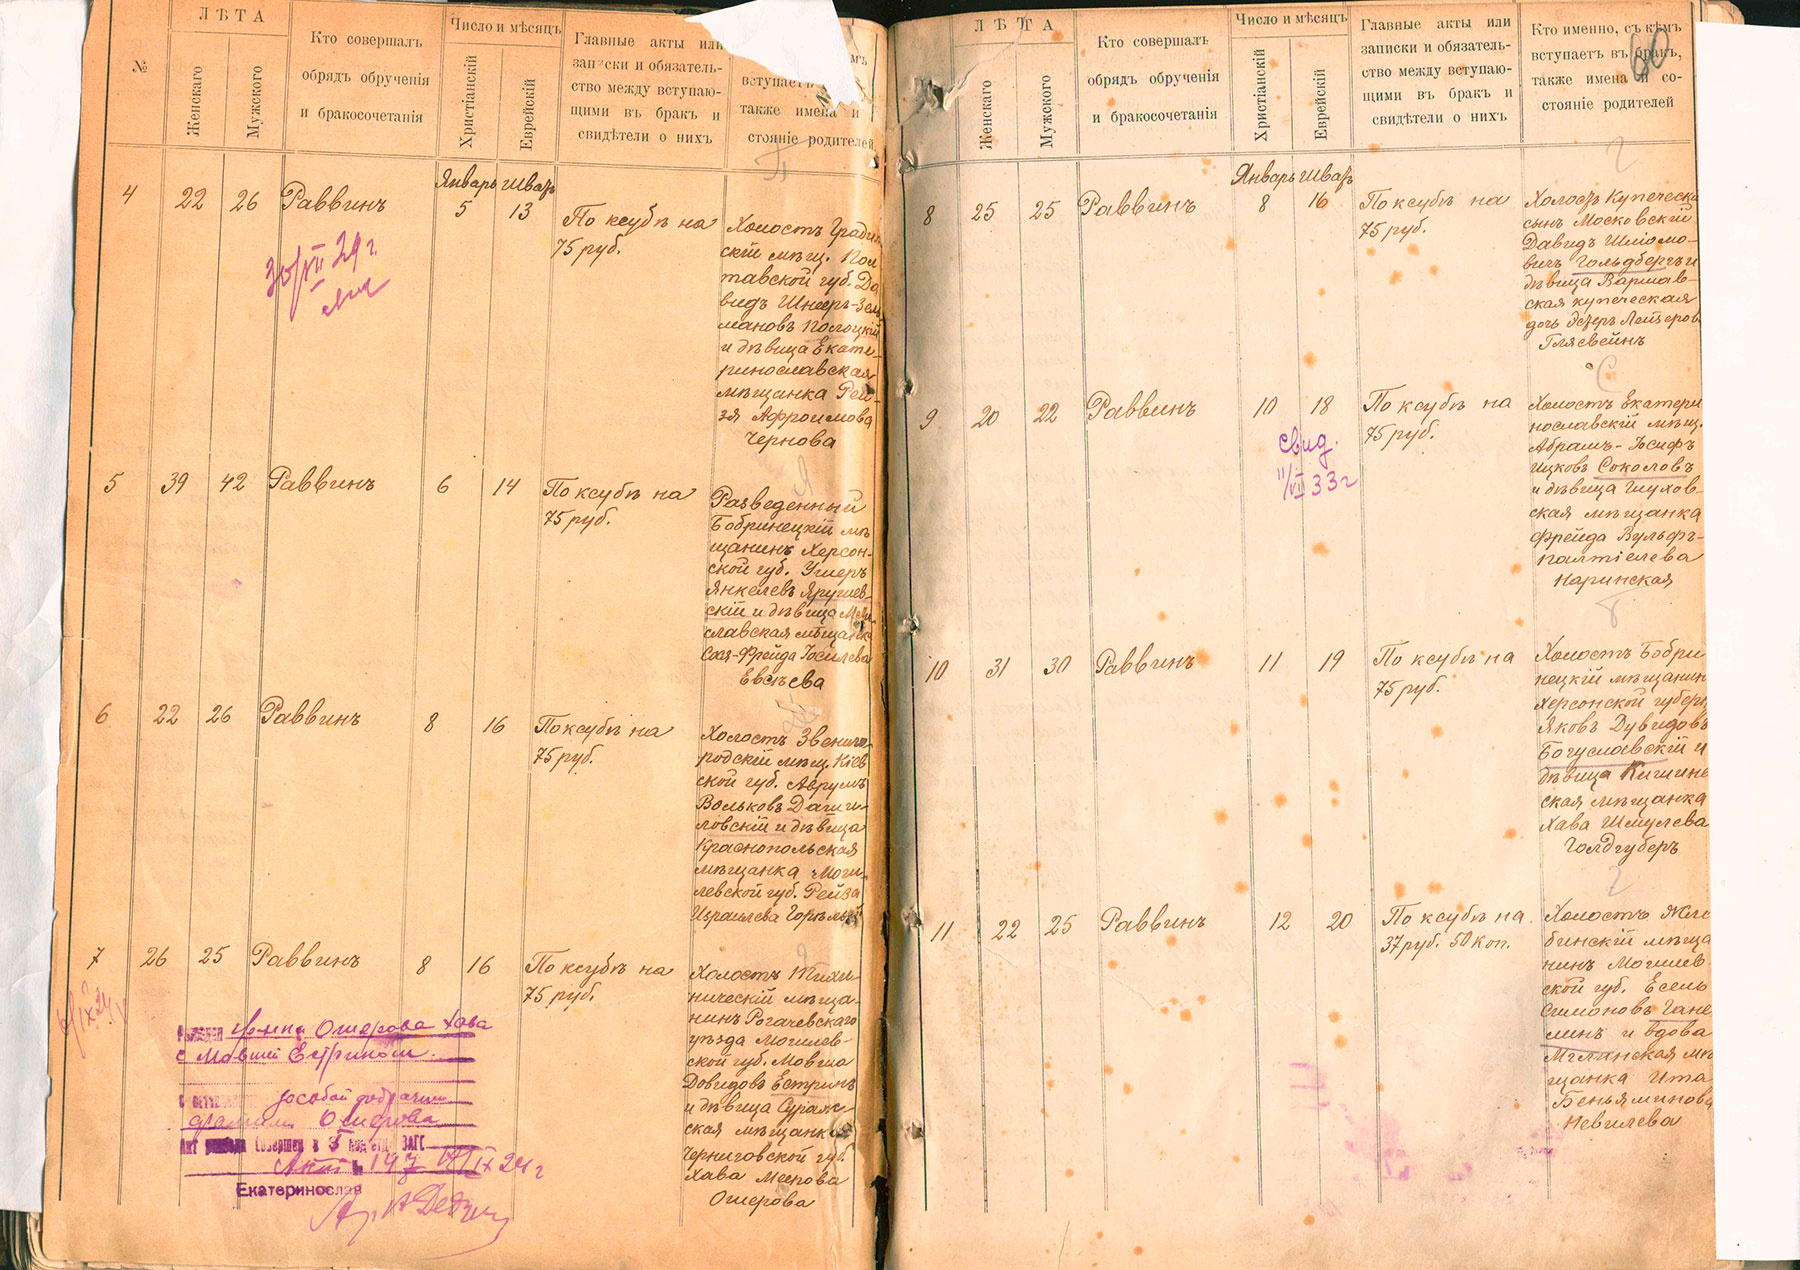 №
ЛѢТА
Женскаго
Мужского
Кто совершалъ
обрядъ обрученія
и бракосочетанія
Число и мѣсяцъ
Христіанскій
Еврейскій
Главные акты или
записки и обязатель-
ство между вступаю-
щими въ бракъ и
свидѣтели о нихъ
вступаетъ
также имена и
стояніе родителей
Январь Шватъ
4 22 26 Раввинъ 5 13 По ксубѣ на
75 руб.
Холостъ
скій мѣщ. Пол
тавской губ. Да
видъ Шнееръ-Зель
мановъ Полоцкій
и дѣвица Екате-
ринославская
мѣщанка Рей-
зя Афроимова
Чернова
30/VII 29 г.
5 39 42 Раввинъ 6 14 По ксубѣ на
75 руб.
Разведенный
Бобринецкій мѣ
щанинъ Херсон-
ской губ. Ушеръ
Янкелевъ
скій и дѣвица
славская мѣщанка
Фрейда Іосилева
Евсѣева
6 22 26 Раввинъ 8 16 По ксубѣ на
75 руб.
Холостъ Звениго-
родскій мѣщ. Кіев
ской губ. Аврумъ
Вольковъ Даши-
ловскій и дѣвица
Краснопольская
мѣщанка Моги-
левской губ. Рейза
Израилева
7 26 25 Раввинъ 8 16 По ксубѣ на
75 руб.
Холостъ Тихи-
ническій мѣща-
нинъ Рогачевскаго
уѣзда Могилев-
ской губ. Мовша
Довидовъ Естринъ
и дѣвица Сураж-
ская мѣщанка
Черниговской губ.
Хава Меерова
Ошерова
Ошерова Хава
с Мовшей Естриным
Ошерова
Акт совершен в ЗАГС
147 IX 24 г
Екатеринослав
60
ЛѢТА
Женскаго
Мужского
Кто совершалъ
обрядъ обрученія
и бракосочетанія
Число и мѣсяцъ
Христіанскій
Еврейскій
Главные акты или
записки и обязатель-
ство между вступаю-
щими въ бракъ и
свидѣтели о нихъ
Кто именно, съ кѣмъ
вступаетъ въ бракъ,
также имена и со-
стояніе родителей
Январь Шватъ
8 25 25 Раввинъ 8 16 По ксубѣ на
75 руб.
Холостъ Купечески
сынъ Московскій
Давидъ Шліомо-
вичъ Гольдбергъ и
дѣвица Варшав-
ская купеческая
дочь Эстеръ Лейзерова
Глясвейнъ
9 20 22 Раввинъ 10 18 По ксубѣ на
75 руб.
Холостъ Екатери
нославскій мѣщ.
Абрамъ-Іосифъ
Ицковъ Соколовъ
и дѣвица Глухов-
ская мѣщанка
Фрейда Вульфъ-
Палтіелева
Наринская
свид.
11/VII 33 г
10 31 30 Раввинъ 11 19 По ксубѣ на
75 руб.
Холостъ Бобри
нецкій мѣщанин
Херсонской губерн
Яковъ Дувидовъ
Богуславскій и
дѣвица Кишине
ская мѣщанка
Хава Шмулева
Голдгуберъ
11 22 25 Раввинъ 12 20 По ксубѣ на
37 руб. 50 коп.
Холостъ Жло
бинскій мѣща
нинъ Могилев
ской губ. Есель
Симоновъ Гане
линъ и вдова
Мглинская мѣ
щанка Ита
Беньяминова
Невелева